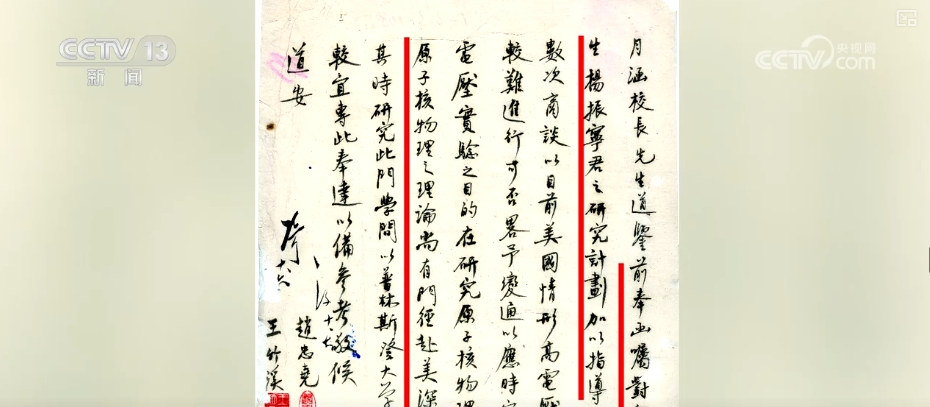 CCTV 13
新闻
央视网
CCTV.com
月涵校長先生道鑒前奉函囑對
生楊振寧君之研究計劃加以指導
數次商談以目前美國情形高電壓
較難進行可否畧予變通以應時
電壓實驗之目的在研究原子核物理
原子核物理之理論尚有門徑赴美深
其時研究此門學問以普林斯登大学
較宜專此奉達以備參考敬候
道安
趙忠堯
王竹溪